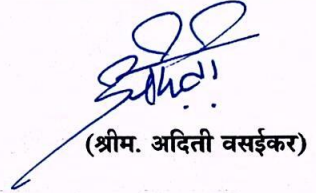 (श्रीम. अदिती वसईकर)